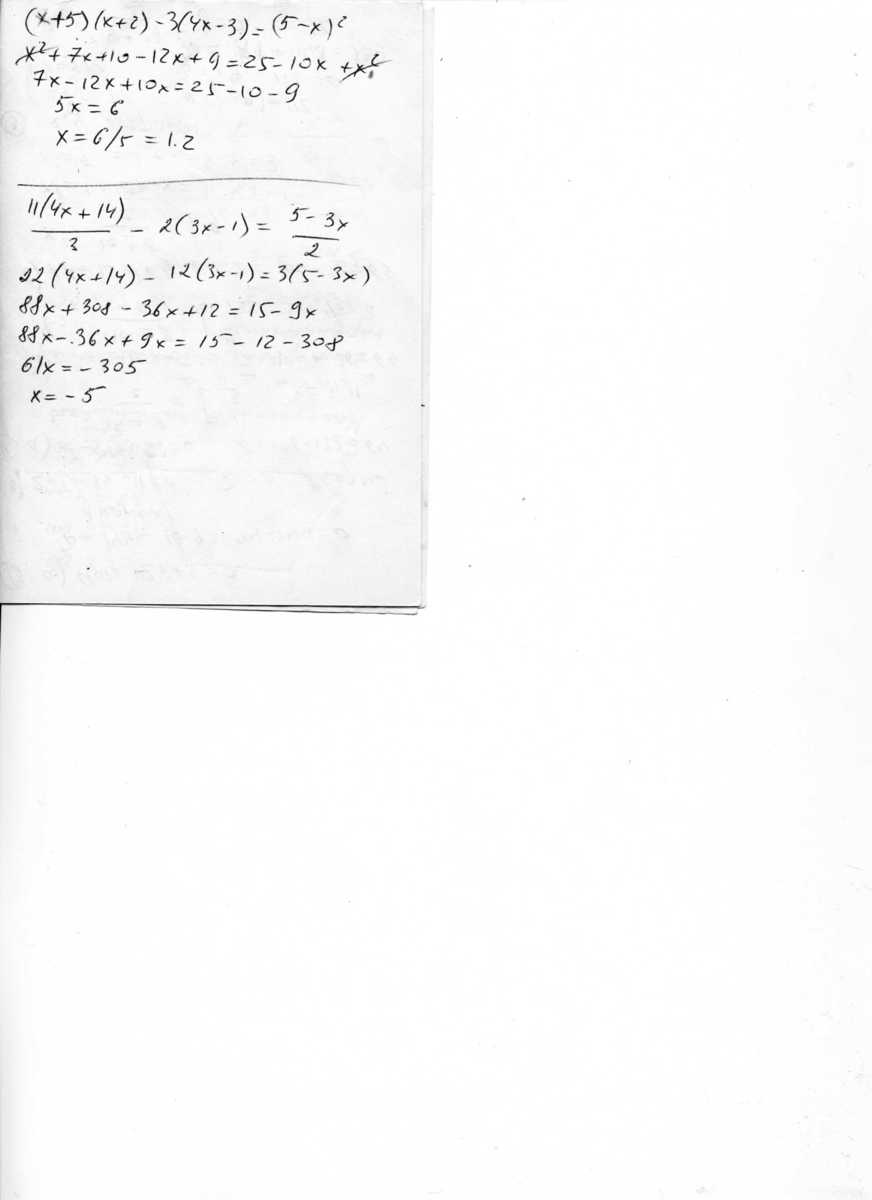 (x+5)(x+2)-3(4x-3)=(5-x)²
x²+7x+10-12x+9=25-10x+x²
7x-12x+10x=25-10-9
5x=6
x=6/5=1.2
11(4x+14)/3 - 2(3x-1) = 5-3x/2
22(4x+14)-12(3x-1)=3(5-3x)
88x+308-36x+12=15-9x
88x-36x+9x=15-12-308
61x=-305
x=-5